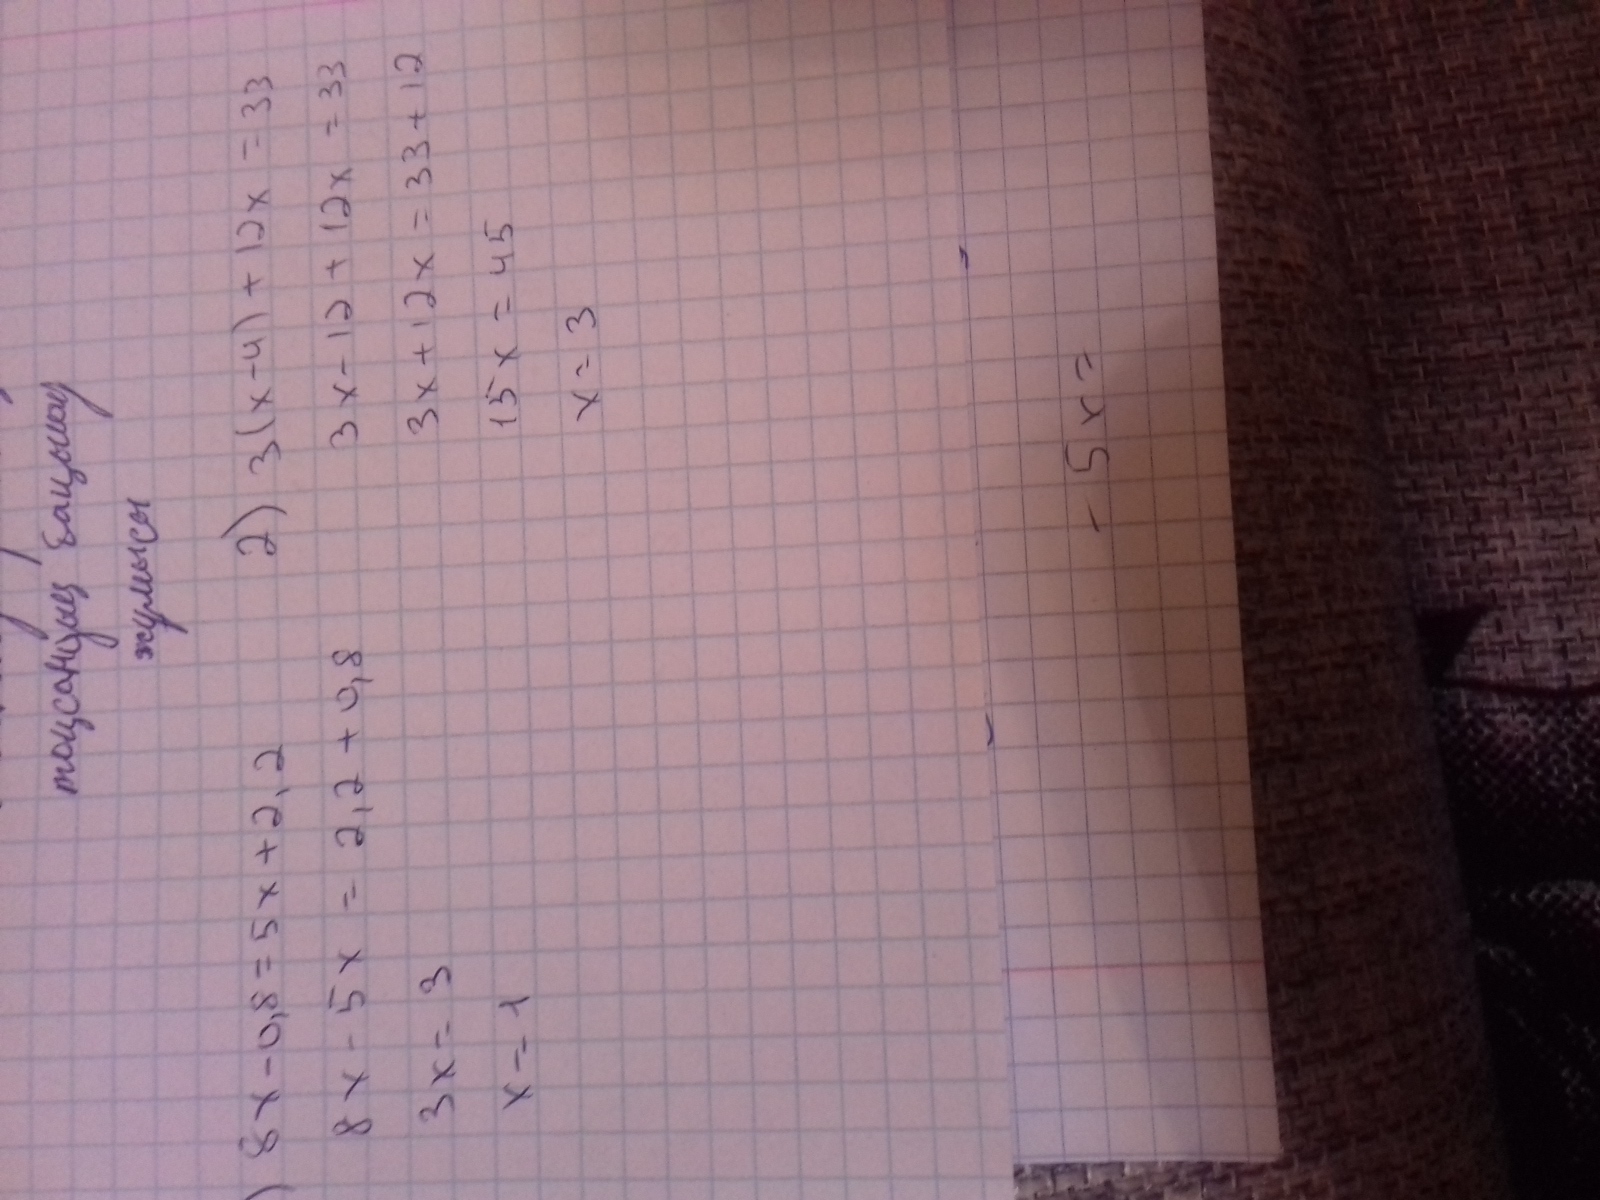 тоқсандық бақылау
жұмысы
) 8x-0,8=5x+2,2
8x-5x=2,2+0,8
3x=3
x=1
2) 3(x-4)+12x=33
3x-12+12x=33
3x+12x=33+12
15x=45
x=3
-5x=